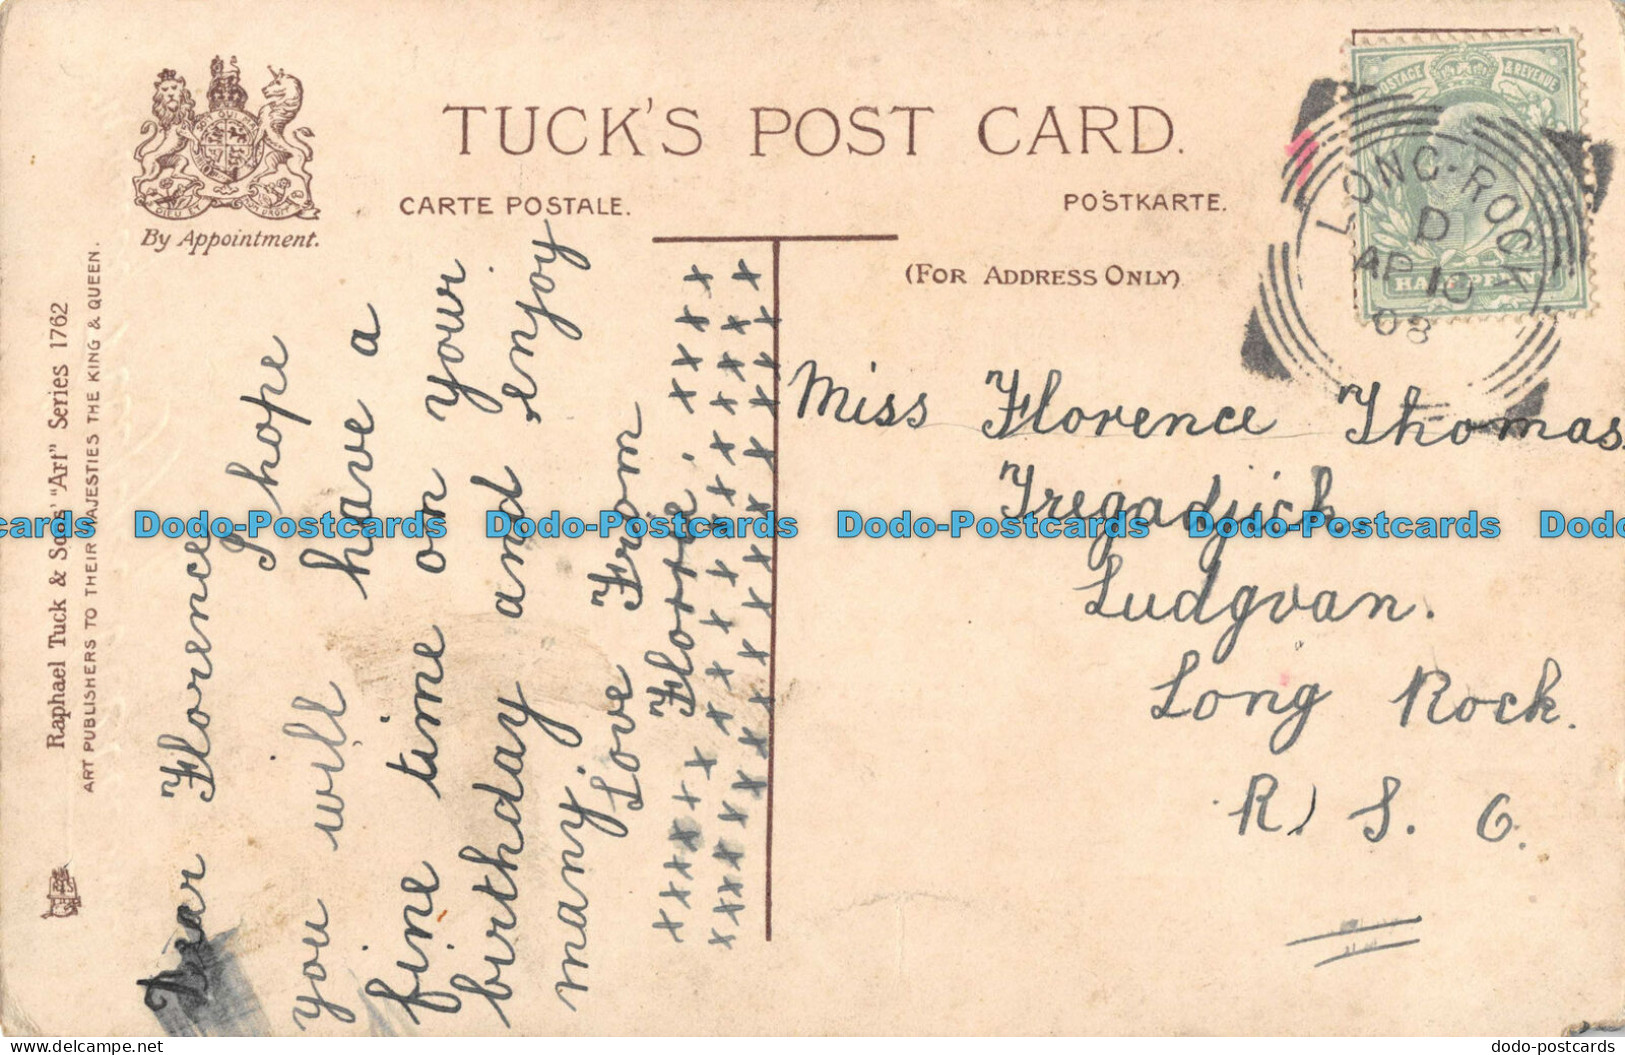 TUCK'S POST CARD.
CARTE POSTALE.
POSTKARTE.
(FOR ADDRESS ONLY)
By Appointment.
Raphael Tuck & Sons' "Art" Series 1762
ART PUBLISHERS TO THEIR MAJESTIES THE KING & QUEEN.
POSTAGE & REVENUE
HALFPENNY
LONG-ROCK
D
AP 10
08
Dear Florence
I hope
you will have a
fine time on your
birthday and enjoy
many.
Love From
Florrie.
x x x x x x x x x x x
x x x x x x x x x x x x x x x x
x x x x x x x x x x x x
Miss Florence Thomas
Tregadjick.
Ludgvan.
Long Rock.
R. S. O.
Dodo-Postcards Dodo-Postcards Dodo-Postcards Dodo-Postcards
dodo-postcards.com